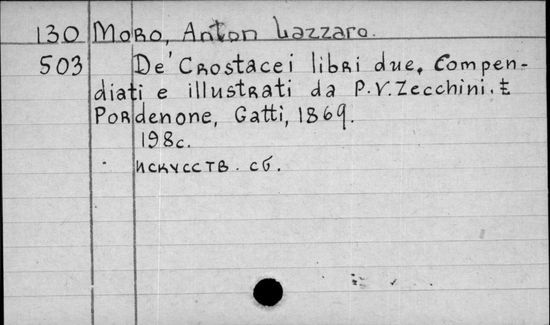 130 Moro, Anton Lazzaro.
503 De' Crostacei libri due. Compen-
diati e illustrati da P.V. Zecchini. ‡
Pordenone, Gatti, 1869.
198с.
искусств. сб.